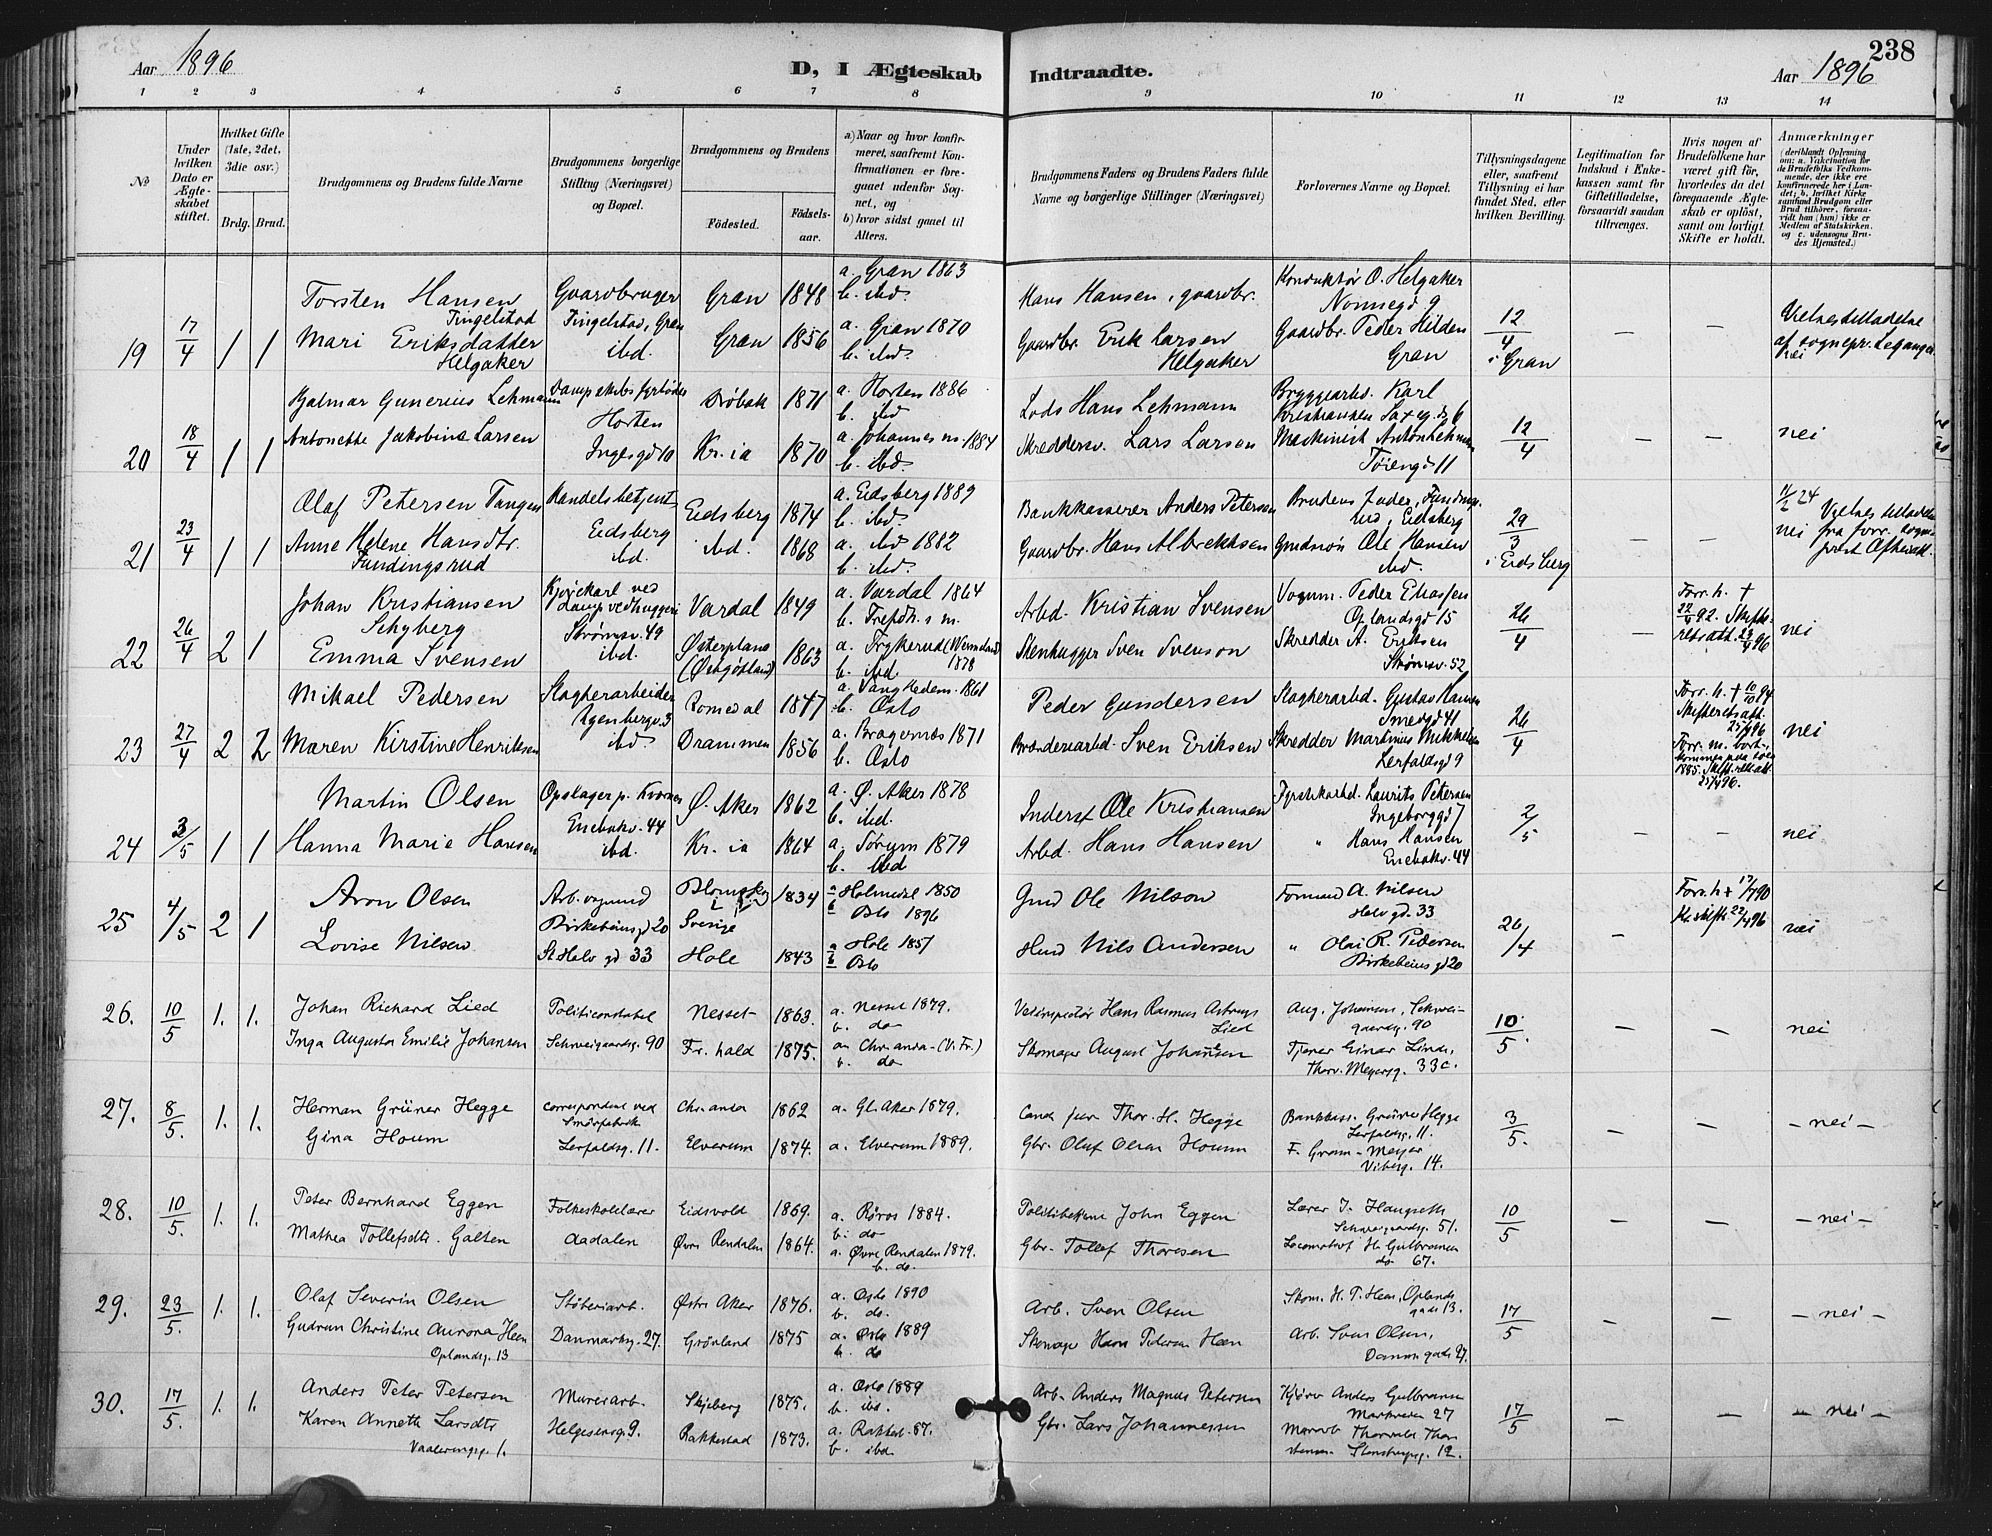 238
Aar 1896
D, I Ægteskab Indtraadte.
Aar 1896
1 2 3 4 5 6 7 8 9 10 11 12 13 14
No
Under hvilken Dato er Ægteskabet stiftet.
Hvilket Gifte (1ste, 2det, 3die osv.)
Brdg. Brud.
Brudgommens og Brudens fulde Navne
Brudgommens borgerlige Stilling (Næringsvei) og Bopæl.
Brudgommens og Brudens
Fødested.
Fødselsaar.
a) Naar og hvor konfirmeret, saafremt Konfirmationen er foregaaet udenfor Sognet, og
b) hvor sidst gaaet til Alters.
Brudgommens Faders og Brudens Faders fulde Navne og borgerlige Stillinger (Næringsvei)
Forlovernes Navne og Bopæl.
Tillysningsdagene eller, saafremt Tillysning ei har fundet Sted, efter hvilken Bevilling.
Legitimation for Indskud i Enkekassen samt for Giftetilladelse, forsaavidt saadan tiltrænges.
Hvis nogen af Brudefolkene har været gift før, hvorledes da det foregaaende Ægteskab er opløst, samt om lovligt Skifte er holdt.
Anmærkninger
(deriblandt Oplysning om: a. Vakcination for de Brudefolks Vedkommende, der ikke ere konfirmerede her i Landet; b. hvilket Kirkesamfund Brudgom eller Brud tilhører, forsaavidt han (hun) ikke er Medlem af Statskirken, og c. udensogns Brudes Hjemsted.)
19 17/4 1 1
Torsten Hansen Tingelstad
Gaardbruger Tingelstad, Gran
Gran 1848
a. Gran 1863
b. ibd.
Hans Hansen, gaardbr.
Konduktør O. Helgaker
Nonnegd 9
12/4 i Gran
— —
Vielsestilladelse af sognepr.
nei
Mari Eriksdatter Helgaker
ibd.
Gran 1856
a. Gran 1870
b. ibd.
Gaardbr. Erik Larsen Helgaker
Gaardbr. Peder Hilden
Gran
20 18/4 1 1
Hjalmar Gunerius Lehmann
Dampskibsfyrbøder Horten
Drøbak 1871
a. Horten 1886
b. ibd
Lods Hans Lehmann
Bryggearbd. Karl Kristiansen Saxegd 6
12/4
— —
nei
Antonette Jakobine Larsen
Ingesgd 10
Kr.ia 1870
a. Johannes m. 1884
b. ibd.
Skreddersv. Lars Larsen
Maskinist Anton Lehmann
Tøiengd 11
21 23/4 1 1
Olaf Petersen Tangen
Handelsbetjent Eidsberg
Eidsberg 1874
a. Eidsberg 1889
b. ibd.
Bankkasserer Anders Petersen
Brudens fader,
Eidsberg
29/3 i Eidsberg
— —
nei
Vielsestilladelse fra
Anne Helene Hansdtr. Fundingsrud
ibd.
ibd. 1868
a. ibd 1882
b. ibd.
Gaardbr. Hans Albrektsen
Ole Hansen
ibd.
22 26/4 2 1
Johan Kristiansen Schyberg
Kjørekarl ved Dampvedhuggeri Strømsv. 49
Vardal 1849
a. Vardal 1864
b. Trefdh.s m.
Arbd. Kristian Svensen
Vognm. Peder Eliassen
Oplandsgd 15
26/4
—
Forr. h. †
22/4 92. Skifteretsatt. 23/4 96
nei
Emma Svensen
ibd.
Østerplana (Østgötland) 1863
a. Frykerud (Wermeland) 1878
b. ibd
Stenhugger Sven Svenson
Skredder A. Eriksen
Strømsv. 52
23 27/4 2 2
Mikael Pedersen
Slagterarbeider Agenbergv. 3
Romedal 1847
a. Vang Hedem. 1861
b. Oslo
Peder Gundersen
Slagterarbd. Gustav Hansen
Smedgd 41
26/4
Forr. h. † 10/10 94
Skifteretsatt. 25/4 96
nei
Maren Kirstine Henriksen
ibd
Drammen 1856
a. Bragernæs 1871
b. Oslo
Brænderiarbd. Sven Eriksen
Skredder Martinius Mikkelsen
Lerfaldsgd 9
Forr. m. bortkommen paa søen 1885. Skift.rettsatt 25/4 96.
24 3/5 1 1
Martin Olsen
Opslager p. Kværnes Enebakv. 44
Ø. Aker 1862
a. Ø. Aker 1878
b. ibd.
Inderst Ole Kristiansen
Fyrstikarbd. Laurits Petersen
Ingeborggd 7
2/5
— —
nei
Hanna Marie Hansen
ibd.
Kr.ia 1864
a. Sørum 1879
b. ibd
Arbd. Hans Hansen
" Hans Hansen
Enebakv. 44
25 4/5 2 1
Aron Olsen
Arb. vogmd Birkebeinsgd 20
Blomskog i Sverige 1834
a Holmedal 1850
b Oslo 1896
Gmd Ole Nilson
Formand A. Nilsen
Halv gd. 33
26/4
—
Forr. h + 17/7 90
nei
Lovise Nilsen
St Halv gd 33
Hole 1843
a Hole 1857
b Oslo
Hmd Nils Andersen
" Olai R. Pedersen
Birkebeins gd 20
26. 10/5 1. 1.
Johan Richard Lied
Politiconstabel
Nesset 1863.
a. Nesset 1879.
b. do
Veiinspektør Hans Rasmus Astrups Lied
Aug. Johansen, Schweigaardsg. 90
10/5.
— —
nei
Inga Augusta Emilie Johansen
Schweigaardsg. 90
Fr. hald 1875.
a. Chr.ania (V. Fr.)
b. do
Skomager August Johansen
Tjener Einar Linds,
Thorv. Meyersg. 33c.
27. 8/5. 1. 1.
Herman Grüner Hegge
Correspondent ved Smørfabrik
Chr.ania 1862
a. Gl. Aker 1879.
Cand jur Thor. H. Hegge
Bankkass. Grüner Hegge
Lerfaldsg. 11.
3/5.
— —
— nei —
Gina Houm
Lerfaldsg. 11.
Elverum 1874.
a. Elverum 1889.
Gbr. Oluf Olsen Houm
F. Gram-Meyer
Vibesg. 14.
28. 10/5. 1. 1.
Peter Bernhard Eggen
Folkeskolelærer
Eidsvold 1869.
a. Røros 1884.
b. do
Politibetjent John Eggen
Lærer J. Haugseth
Schweigaardsg. 51.
10/5
— —
— nei —
Mathea Tollefsdtr. Galten
Aadalen
Øvre Rendalen 1864.
a. Øvre Rendalen 1879.
b. do.
Gbr. Tollef Thoresen
Locomotivf. H. Gulbransen
do 67.
29. 23/5. 1. 1.
Olaf Severin Olsen
Støberiarb.
Østr. Aker 1876.
a. Oslo 1890
b. do.
Arb. Sven Olsen
Skom. H. P. Heen, Oplandsgade 13.
17/5
— —
— nei —
Gudrun Christine Aurora Heen
Oplandsg. 13
Danmarksg. 27.
Grønland 1875
a. Oslo 1889
b. do
Skomager Hans Pedersen Heen
Arb. Sven Olsen,
Danm gade 27.
30. 17/5. 1. 1.
Anders Peter Petersen
Murerarb.
Skjeberg 1875.
a. Oslo 1889
b. ibd.
Arb. Anders Magnus Petersen
Kjører Anders Gulbransen
Markveien 27
17/5
— —
— nei —
Karen Anneth Larsdtr
Vaaleringsg. 1.
Helgesensg. 9.
Rakkestad 1873.
a. Rakkest. 87.
b. ibd
Gbr. Lars Johannessen
Murarb Thorvald Thorstensen Stenstrupsg. 12.